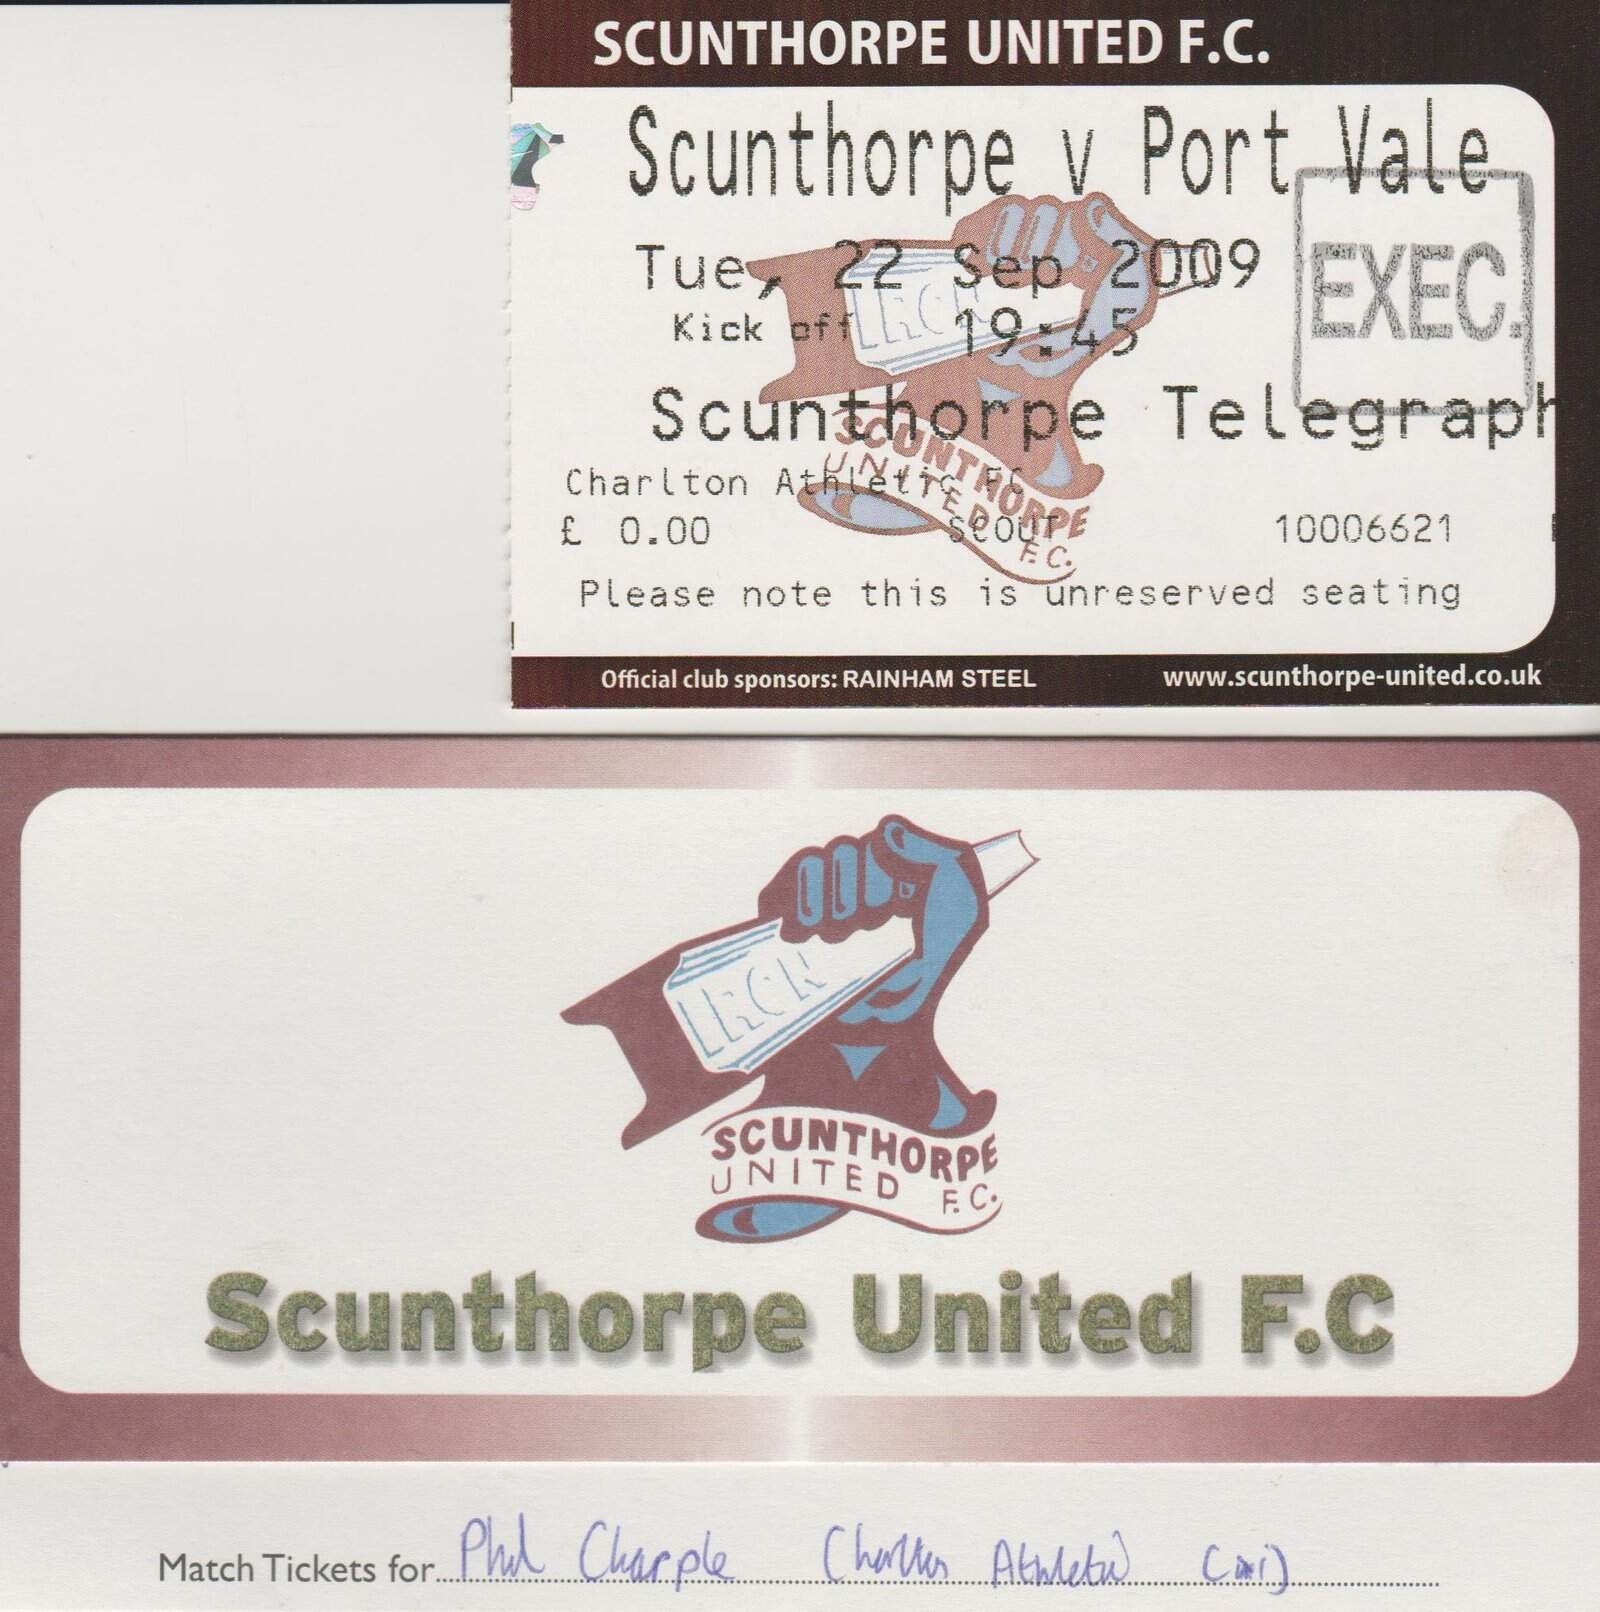 SCUNTHORPE UNITED F.C.
Scunthorpe v Port Vale
Tue, 22 Sep 2009
Kick off 19:45
EXEC.
Scunthorpe Telegraph
Charlton Athletic FC
£ 0.00 SCOUT 10006621
Please note this is unreserved seating
IRON
SCUNTHORPE
UNITED F.C.
Official club sponsors: RAINHAM STEEL www.scunthorpe-united.co.uk
IRON
SCUNTHORPE
UNITED F.C.
Scunthorpe United F.C
Match Tickets for Phil Chapple Charlton Athletic